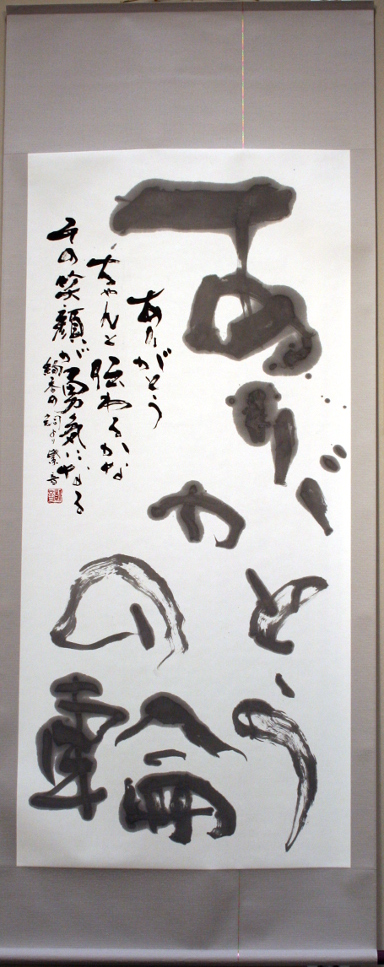 ありがとう
の輪
ありがとう
ちゃんと伝わるかな
その笑顔が勇気になる
絢香の詞より 紫音